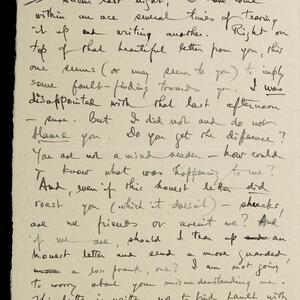 written last night, I have come
within an ace several times of tearing
it up and writing another. Right on
top of that beautiful letter from you, this
one seems (or may seem to you) to imply
some fault-finding towards you. I was
disappointed with that last afternoon
- sure. But I did not and do not
blame you. Do you get the difference?
You are not a mind reader - how could
y know what was happening to me?
And, even if this honest letter did
roast you (which it doesn't) - shucks,
are we friends or aren't we? And
if we are, should I tear up an
honest letter and send a more guarded,
a less frank, one? I am not going
to worry about your misunderstanding me.
This letter is written not to find fault with